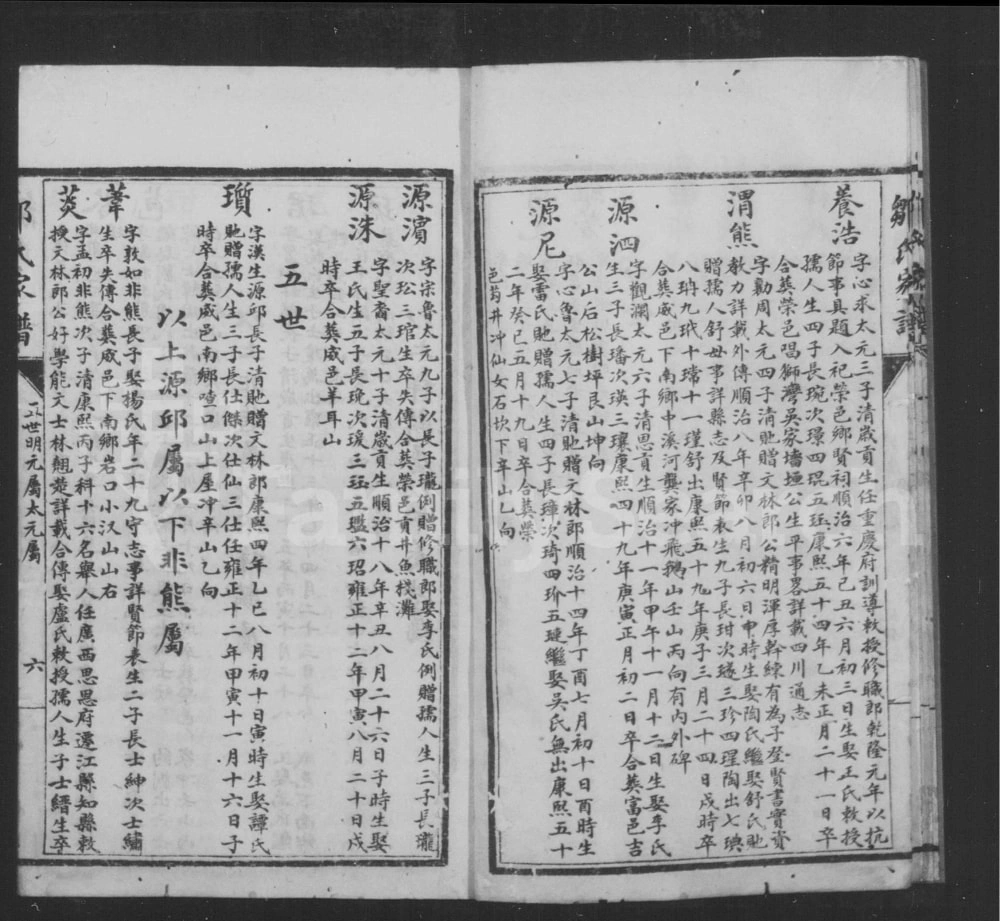 鄒氏家譜
養浩
字心求太元三子清歲貢生任重慶府訓導教授修職郎乾隆元年以抗
節事具題入祀榮邑鄉賢祠順治六年己丑六月初三日生娶正氏敕授
孺人生四子長琬次璟四琨五珏康熙五十四年乙未正月二十一日卒
合葬榮邑唱獅灣吳家墻垣公生平事畧詳載四川通志
渭熊
字勷周太元四子清貤贈文林郎公精明渾厚幹練有為子登賢書實資
教力詳載外傳順治八年辛卯八月初六日申時生娶陶氏繼娶舒氏貤
贈孺人舒毋事詳縣志及賢節表生九子長玵次璲三珍四瑆陶出七璵
八珃九玳十璫十一瑾舒出康熙五十九年庚子三月二十四日戌時卒
合葬威邑下南鄉中溪河龔家冲飛鵝山壬山丙向有内外碑
源泗
字觀瀾太元六子清恩貢生順治十一年甲午十一月十二日生娶李氏
生三子長璠次瑛三瓖康熙四十九年庚寅正月初二日卒合葬富邑吉
公山后松樹坪艮山坤向
源尼
字心魯太元七子清貤贈文林郎順治十四年丁酉七月初十日酉時生
娶雷氏貤贈孺人生四子長璋次琦四玠五璉繼娶吳氏無出康熙五十
二年癸巳五月十九日卒合葬榮
邑芶井冲仙女石坎下辛山乙向
源濱
字宗魯太元九子以長子瓏例贈修職郎娶李氏例贈孺人生三子長瓏
次玜三琯生卒失傳合葬榮邑貢井魚棧灘
源洙
字聖裔太元十子清歲貢生順治十八年辛丑八月二十六日子時生娶
王氏生五子長琉次瑗三珏五瓛六玿雍正十二年甲寅八月二十日戌
時卒合葬威邑羊耳山
五世
瓆
字漢生源邱長子清貤贈文林郎康熙四年乙巳八月初十日寅時生娶譚氏
貤贈孺人生三子長仕傑次仕仙三仕任雍正十二年甲寅十一月十六日子
時卒合葬威邑南鄉喳口山上屋冲辛山乙向
以上源邱屬以下非熊屬
葦
字敦如非熊長子娶楊氏年二十九守志事詳賢節表生二子長士紳次士繡
生卒失傳合葬威邑下南鄉岩口小汉山山右
莢
字孟初非熊次子清康熙丙子科十六名舉人任廣西思恩府遷江縣知縣敕
授文林郎公好學能文士林翹楚詳載合傳娶盧氏敕授孺人生子士縉生卒
五世明元屬太元屬
六